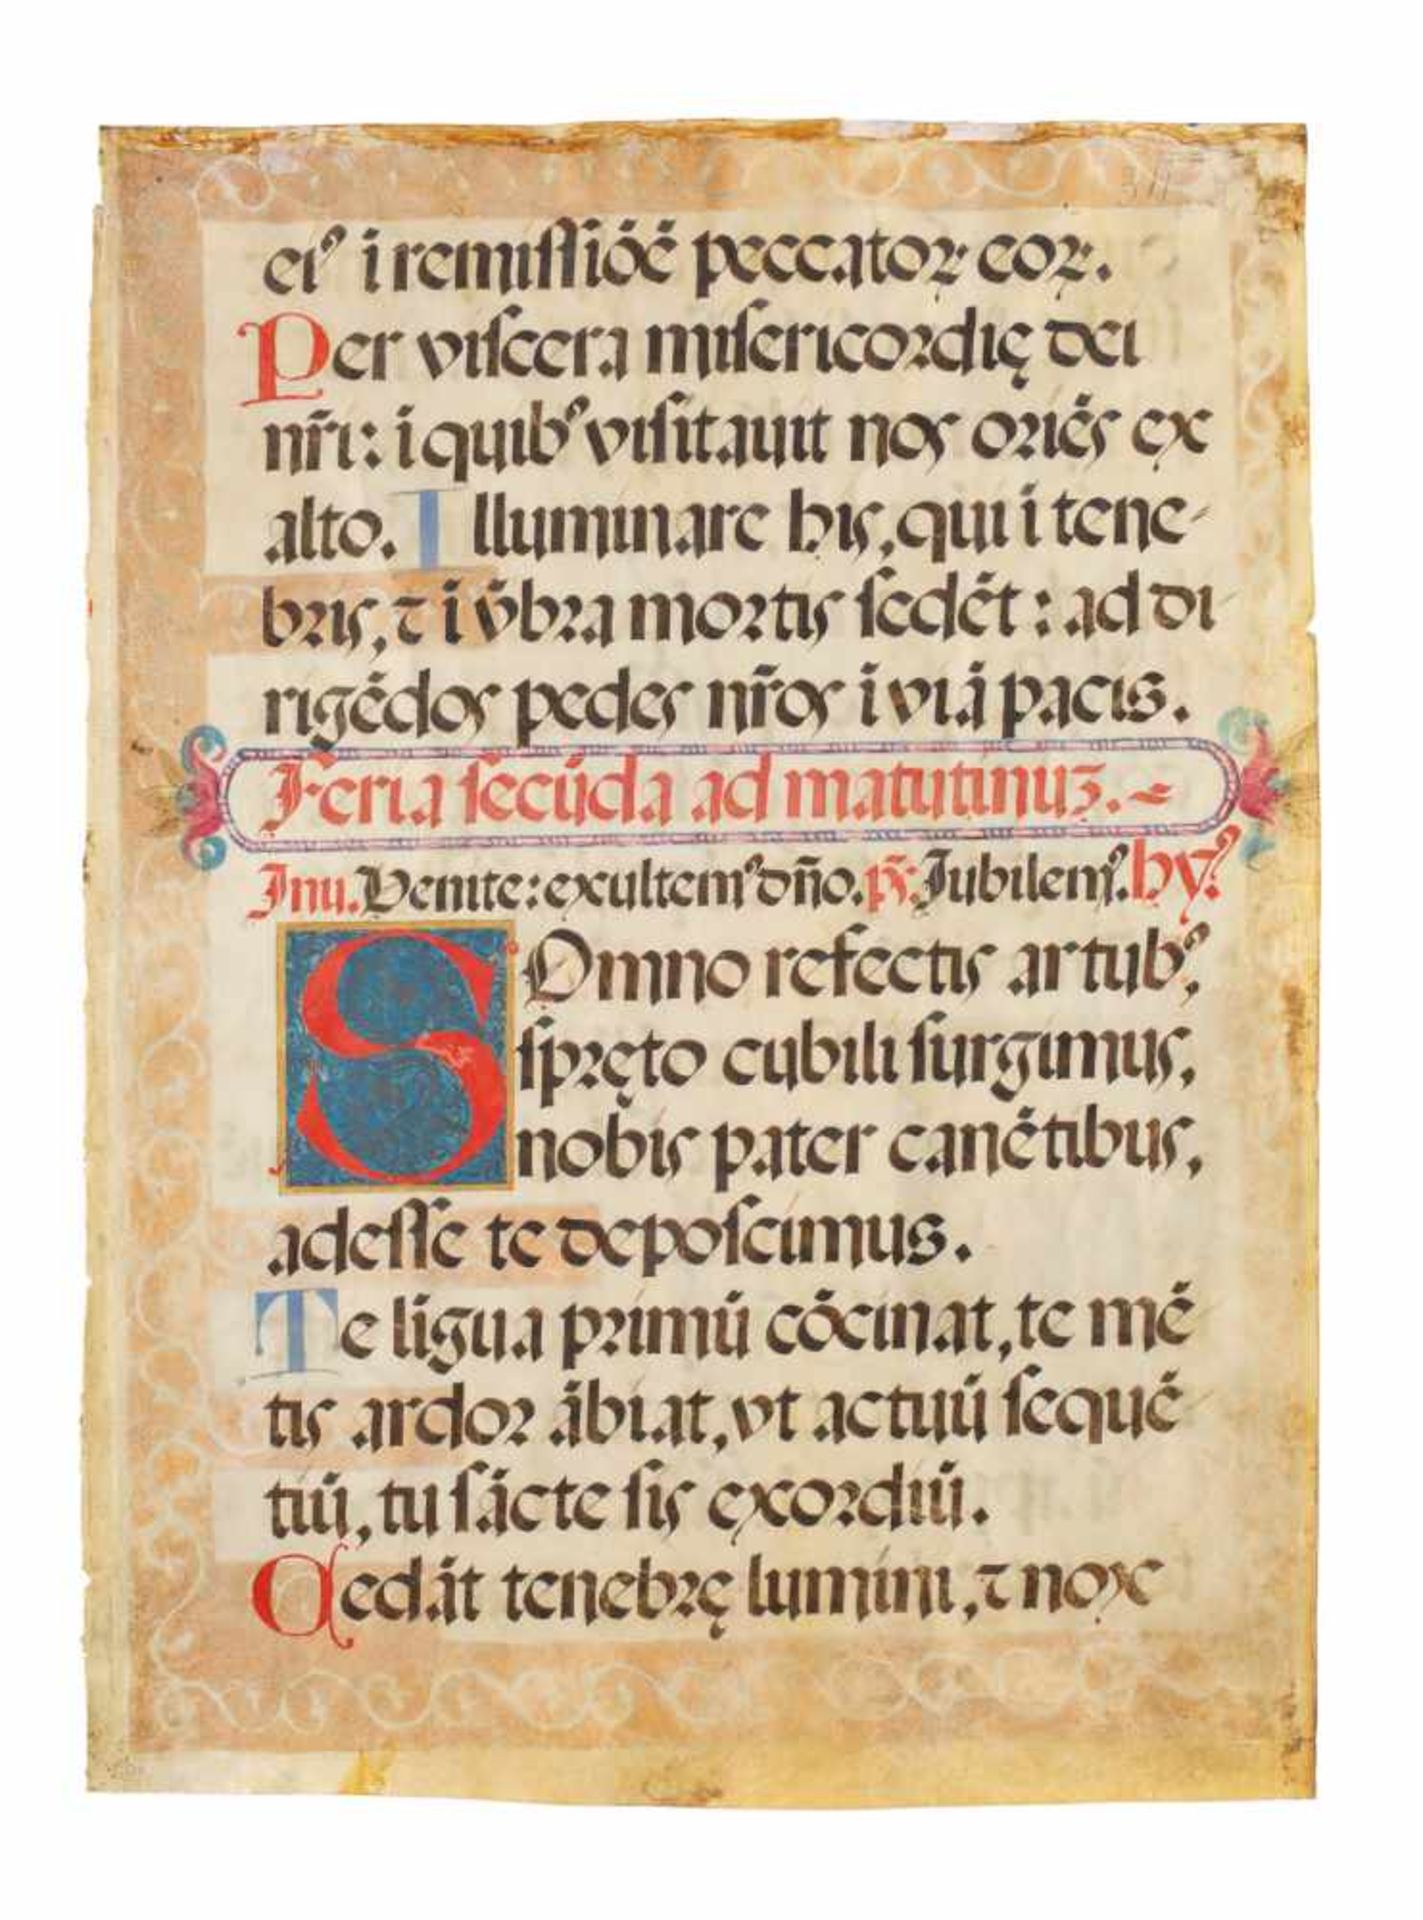 eiꝰ ī remissiōē peccatoꝝ eoꝝ.
Per viscera misericordię dei
nr̄i: ī quibꝰ visitauit nos oriēs ex
alto. Illuminare his, qui ī tene-
bris, ⁊ ī v̄bra mortis sedēt: ad di
rigēdos pedes nr̄os ī viā pacis.
Feria secūda ad matutinuz. -
Inu. Venite: exultemꝰ dn̄o. ps̄. Iubilemꝰ. hy̅ꝰ.
SOmno refectis artubꝰ,
spręto cubili surgimus,
nobis pater canētibus,
adesse te deposcimus.
Te līgua primū cōcinat, te mē
tis ardor ābiat, vt actuū sequē
tiū, tu sācte sis exordiū.
Cedāt tenebrę lumini, ⁊ nox